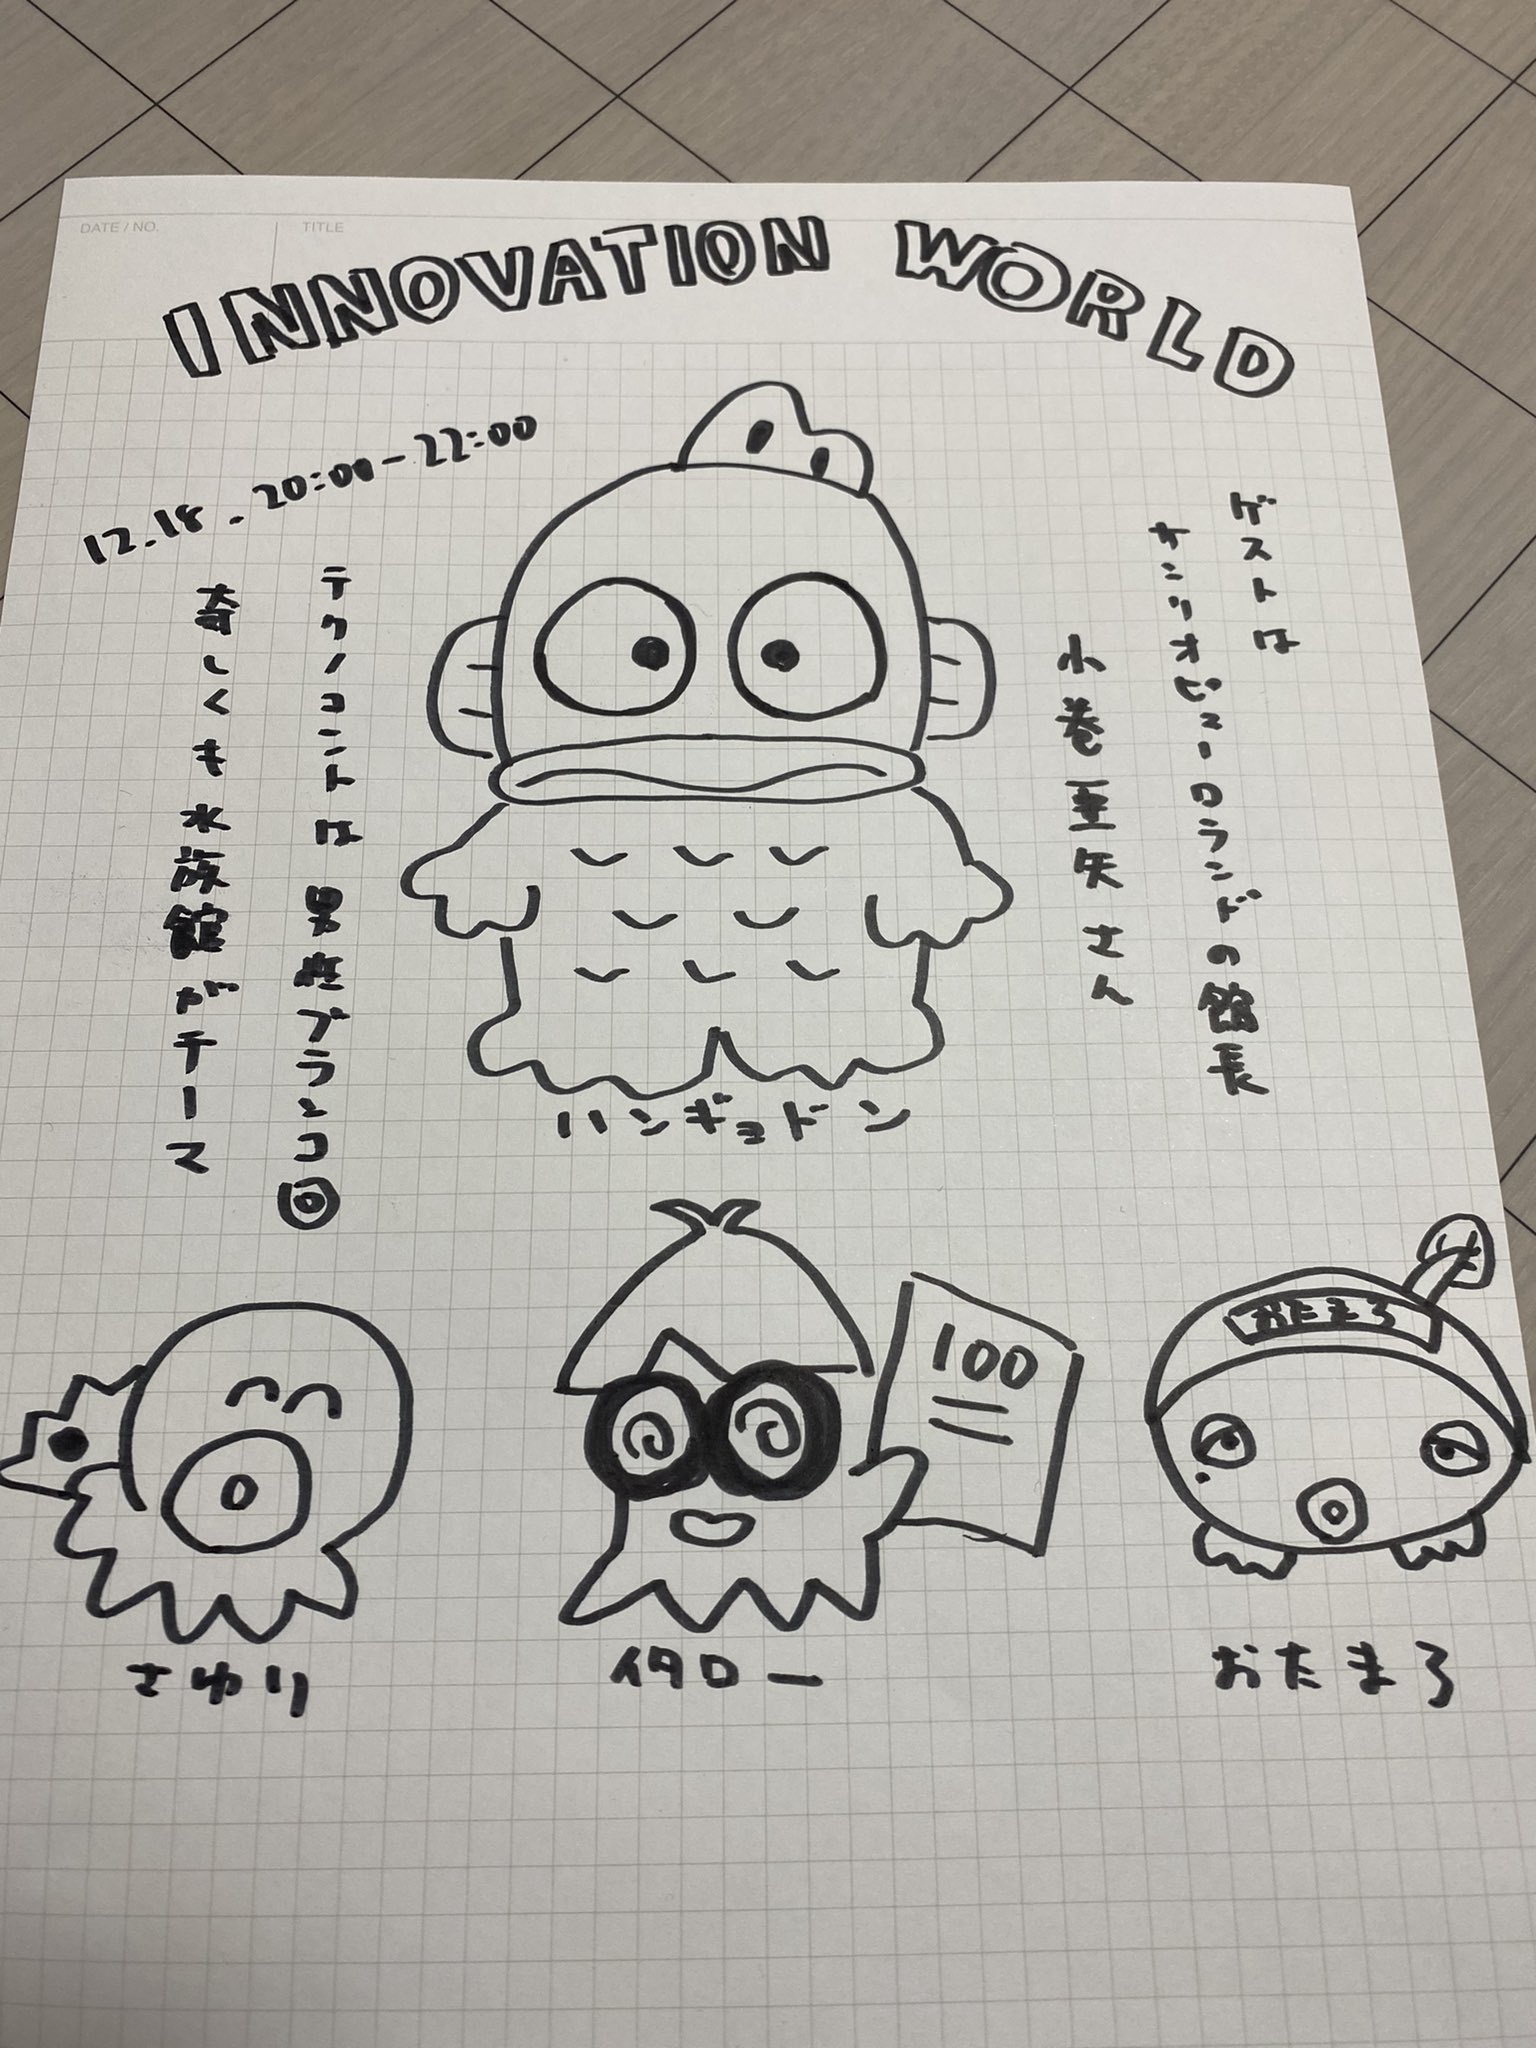 DATE / NO.
TITLE
INNOVATION WORLD
12.18.20:00-22:00
ゲストは
サンリオピューロランドの館長
小巻亜矢さん
テクノコントは男性ブランコ回
奇しくも水族館がテーマ
ハンギョドン
100
おたまろ
さゆり
イタロー
おたまろ